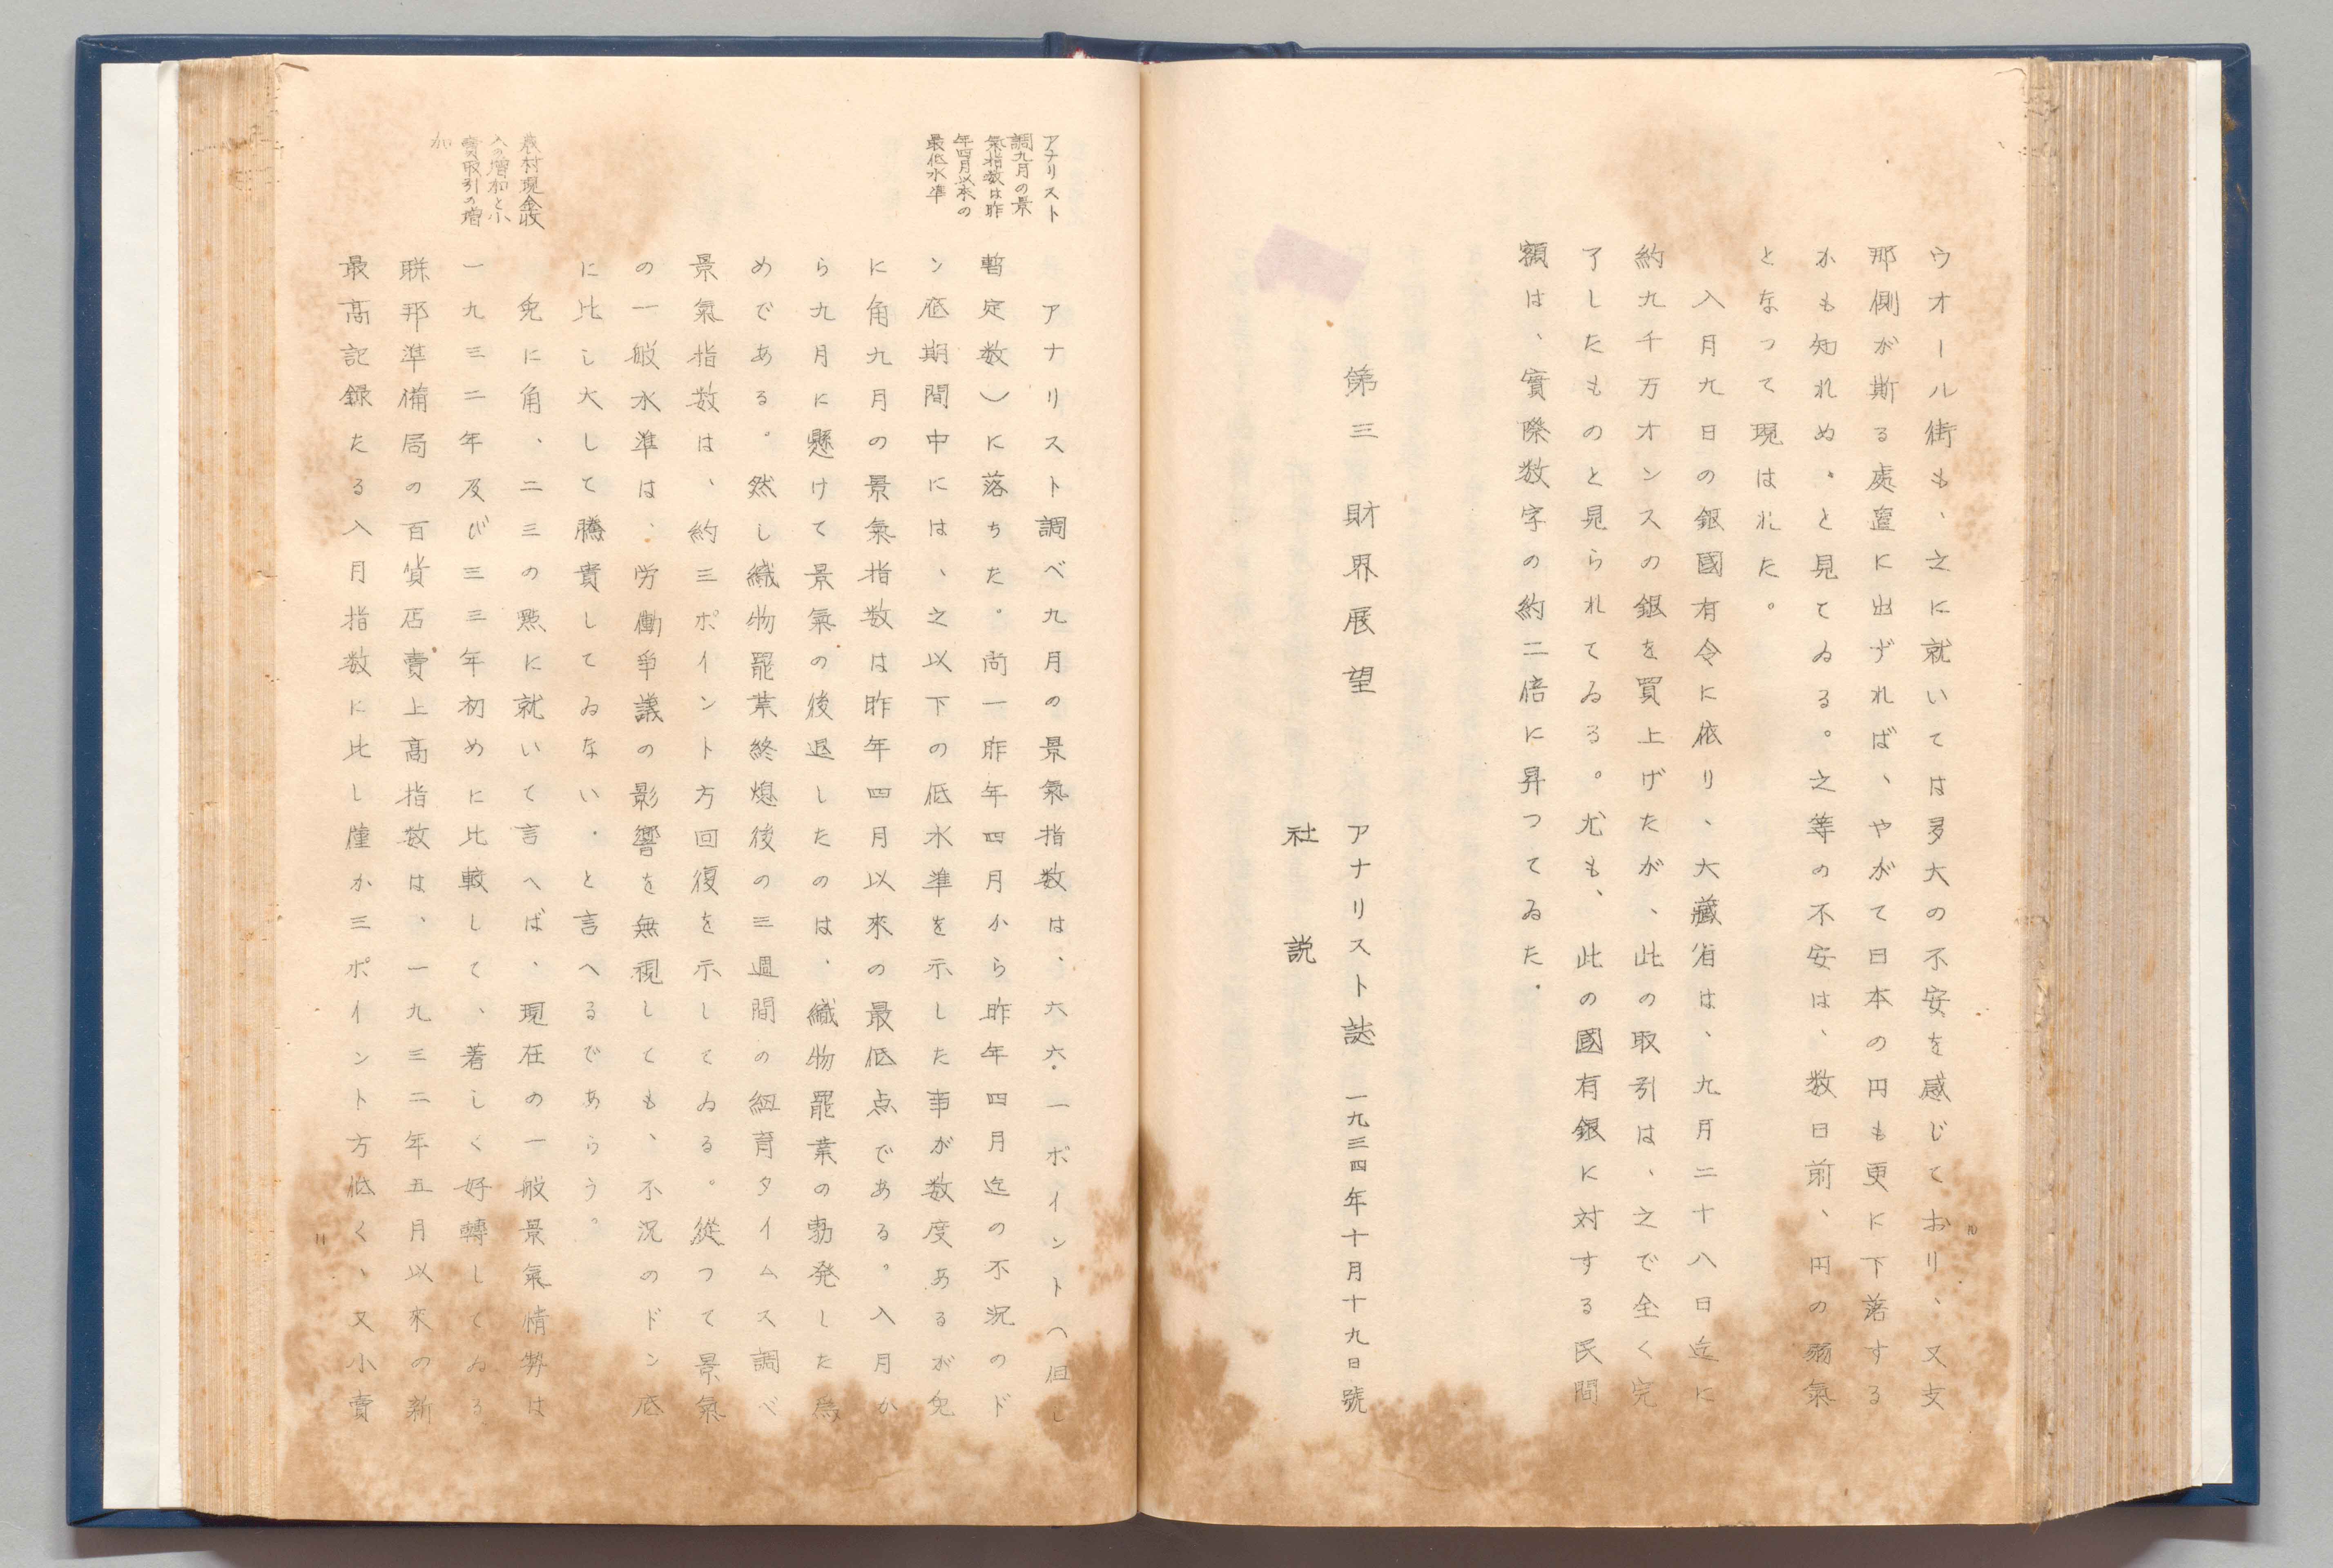 ウオール街も、之に就いては多大の不安を感じており、又支
那側が斯る處置に出ずれば、やがて日本の円も更に下落する
かも知れぬ・と見てゐる。之等の不安は、数日前、円の弱氣
となって現はれた。
入月九日の銀國有令に依リ、大藏省は、九月二十八日迄に
約九千万オンスの銀を買上げたが、此の取引は、之で全く完
了したものと見られてゐる。尤も、此の國有銀に対する民間
額は、實際数字の約二倍に昇つてゐた．
第三 財界展望 アナリスト誌 一九三四年十月十九日號
社説
10
アナリスト
調九月の景
氣指数は昨
年四月以來の
最低水準
アナリスト調べ九月の景氣指数は、六六・一ポイント（但し
暫定数）に落ちた。尚一昨年四月から昨年四月迄の不況のド
ン底期間中には、之以下の低水準を示した事が数度あるが兔
に角九月の景氣指数は昨年四月以來の最低点である。入月か
ら九月に懸けて景氣の後退したのは、織物罷業の勃発した為
めである。然し織物罷業終熄後の三週間の紐育タイムス調べ
景氣指数は、約三ポイント方回復を示してゐる。從つて景氣
の一般水準は、労働爭議の影響を無視しても、不況のドン底
に比し大して騰貴してゐない・と言へるであらう。
農村現金收
入の増加と小
賣取引の増
加
兔に角、二三の點に就いて言へば、現在の一般景氣情勢は
一九三二年及び三三年初めに比較して、著しく好轉してゐる
聯邦準備局の百貨店賣上高指数は、一九三二年五月以來の新
最高記録たる入月指数に比し僅か三ポイント方低く、又小賣
11